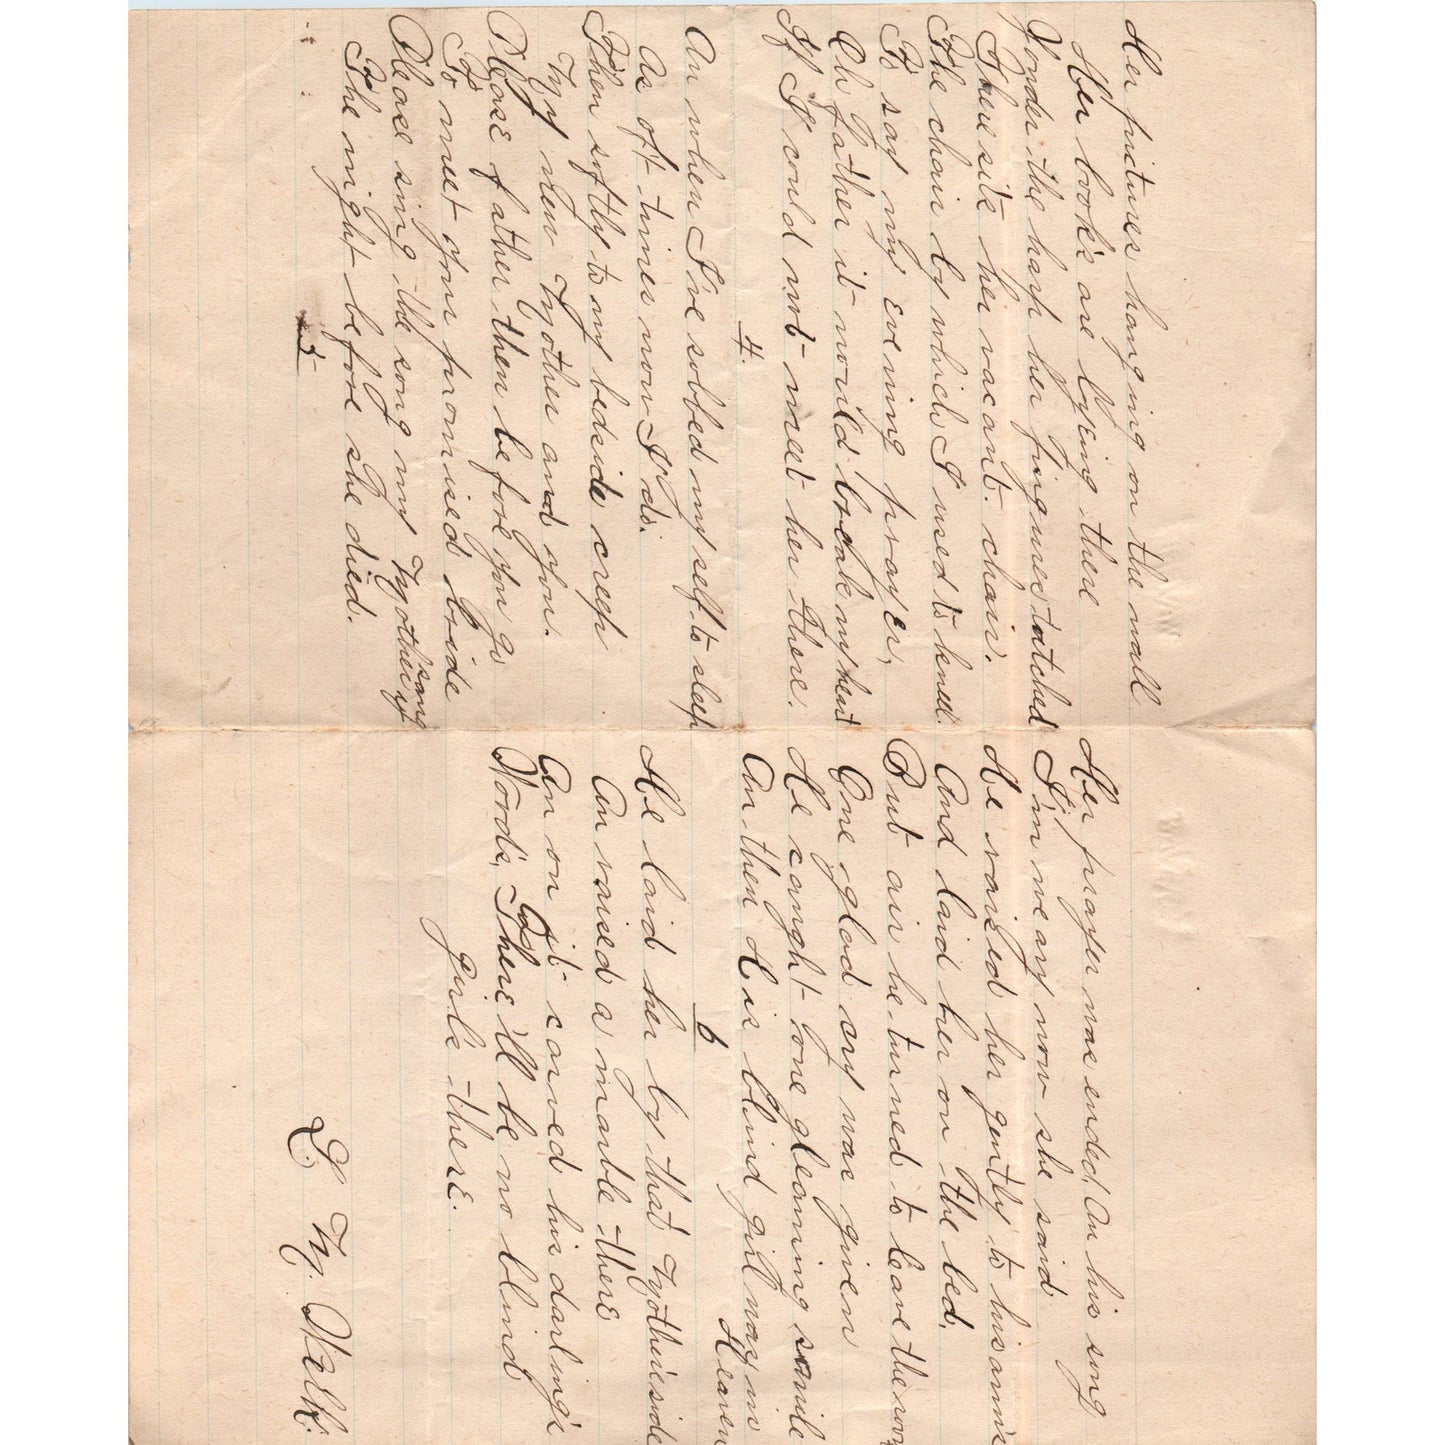 Her pictures hanging on the wall
Her book's are lyeing there
Yonder the harp her fingures tutched
There sits her vacant chair.
The chair by which I used to kneel
To say my evening prayer,
Oh father it would break my heart
If I could not meet her there.
4.
An when I've sobbed myself to sleep
As oft times now I do.
Then softly to my bedside creep
My new Mother and you.
Please father then before you go
To meet your promised bride
Please sing the song my Mother sang
The night before she died.
5
Her prayer was ended, An his song
I'm weary now she said
He raised her gently to his arms
And laid her on the bed.
But air he turned to leave the room
One glad cry was given
He caught one gleaming smile
An then His blind girl was in
Heaven
6
He laid her by that Mother's side
An raised a marble there
An on it carved his darling's
Words, There'll be no blind
girl's there.
L. M. Walk.